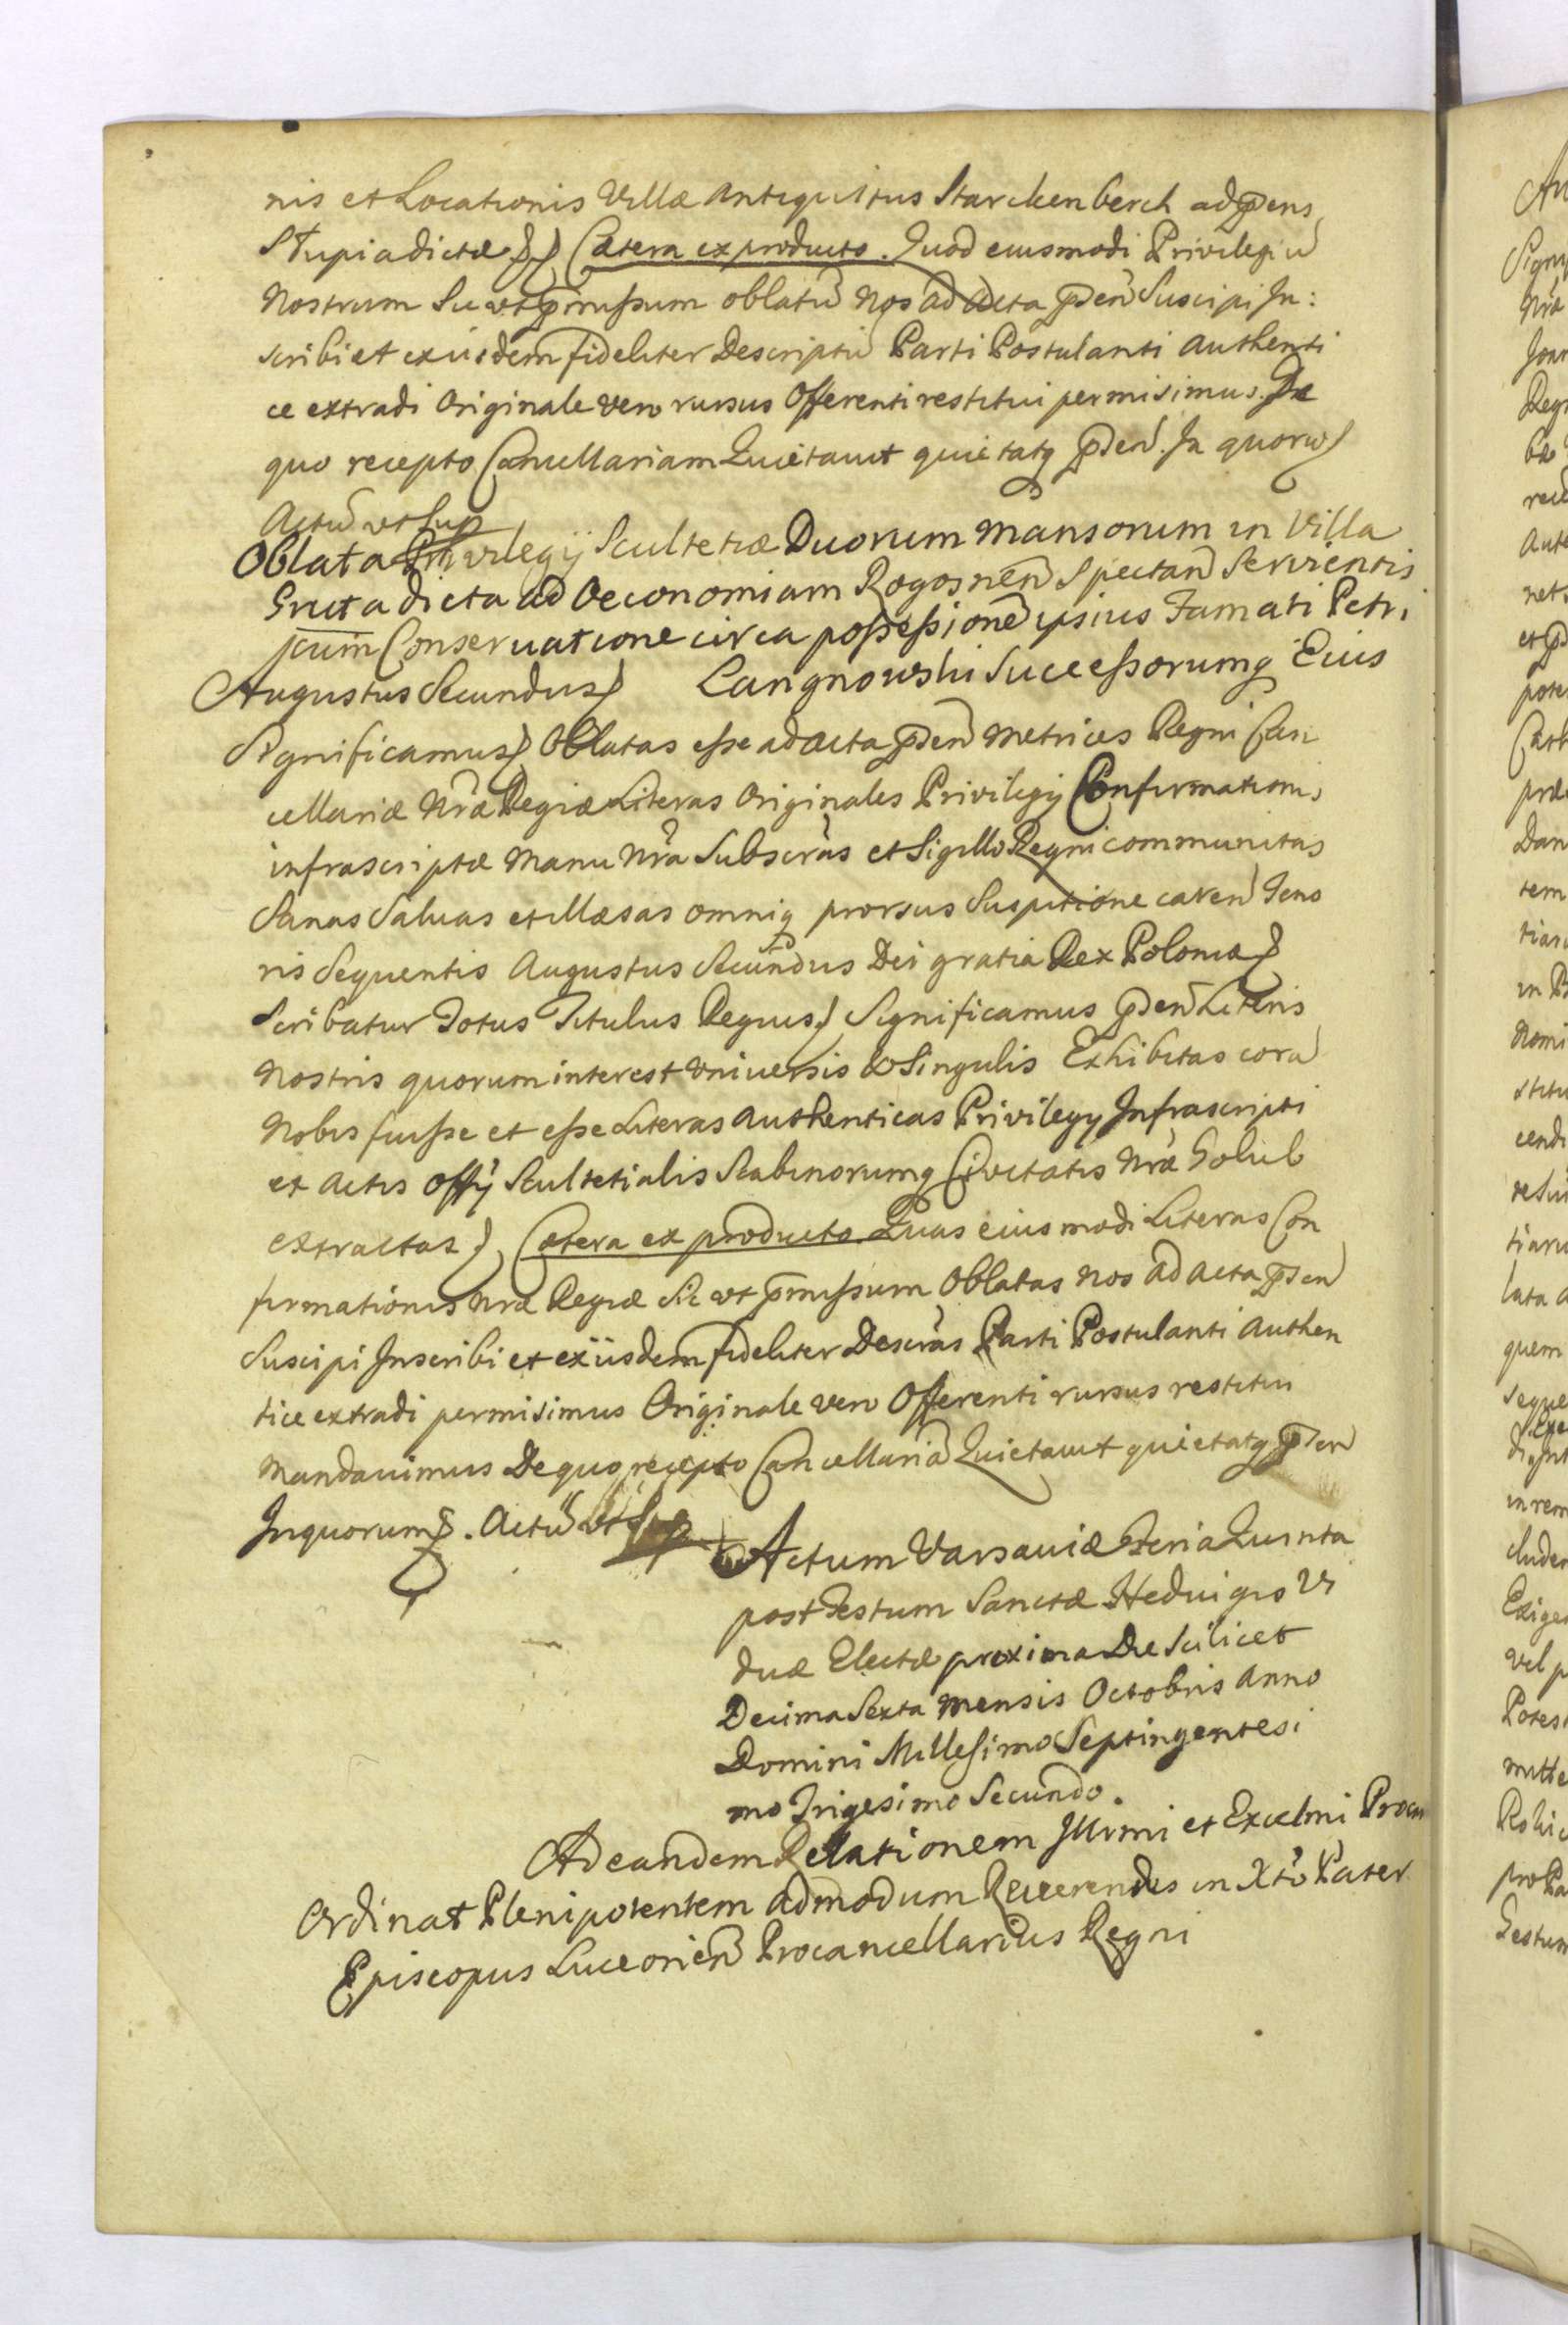 nis et Locationis Villæ Antiquitus Starckenberch ad p̄ens
Stupia dictæ Cætera ex producto. Quod eiusmodi Privilegiū
Nostrum Sic vt p̄missum oblatū Nos ad Acta p̄sen Suscipi In:
scribi et exiisdem fideliter Descriptū Parti Postulanti Authenti
ce extradi Originale vero rursus Offerenti restitui permisimus. De
quo recepto Cancellariam Quietavit quietatq p̄sen. In quorū
Actū vt Sup
Oblata Privilegij Scultetiæ Duorum Mansorum in Villa
Gruta dicta ad Oeconomiam Rogosnen Spectan Servientis
cum Conservatione circa possessionē ipsius Famati Petri
Augustus Secundus Langnowski Successorumq Eius
Significamus Oblatas esse ad Acta p̄sen Metrices Regni Can
cellariæ Nræ Regiæ Literas Originales Privilegij Confirmationis
infrascriptæ Manu Nra Subscras et Sigillo Regni communitas
Sanas Salvas et illæsas omniq prorsus Suspitione caren Teno
ris Sequentis Augustus Secundus Dei gratia Rex Poloniæ
Scribatur Totus Titulus Regius Significamus p̄sen Literis
Nostris quorum interest Vniversis & Singulis Exhibitas corā
Nobis fuisse et esse Literas Authenticas Privilegij Infrascripti
et Actis Offij Scultetialis Scabinorumq Civitatis Nræ Golub
extractas Cætera ex producto Quas eiusmodi Literas Con
firmationis Nræ Regiæ Sic vt p̄missum Oblatas Nos ad Acta p̄sen
Suscipi Inscribi et exiisdem fideliter Descras Parti Postulanti Authen
tice extradi permisimus Originale vero Offerenti rursus restitui
Mandavimus De quo recepto Cancellariā Quietavit quietatq p̄sen
In quorum. Actū vt Sup
Actum Varsaviæ Feria Quinta
post Festum Sanctæ Hedvigis Vi
duæ Electæ proxima Die Scilicet
Decima Sexta Mensis Octobris Anno
Domini Millesimo Septingentesi
mo Trigesimo Secundo.
Ad eandem Relationem Illrmi et Excelmi Procan
Ordinat Plenipotentem Admodum Reverendus in Xto Pater
Episcopus Luceorien Procancellarius Regni